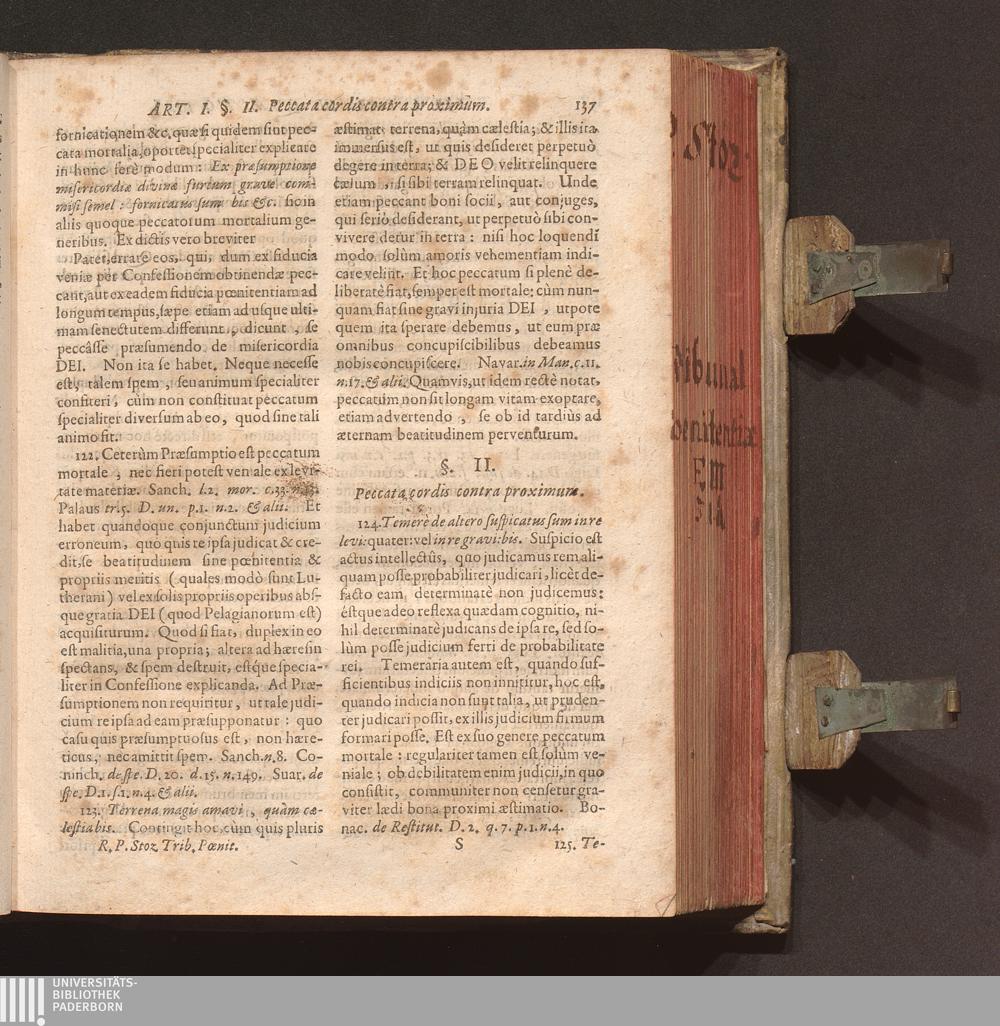 ART. I. §. II. Peccata cordis contra proximum. 137
fornicationem &c. quæ si quidem sint pec-
cata mortalia, oportet specialiter explicate
in hunc ferè modum: Ex præsumptione
misericordiæ divinæ furtum grave com-
misi semel: fornicatus sum bis &c. sic in
aliis quoque peccatorum mortalium ge-
neribus. Ex dictis vero breviter
Patet, errare eos, qui, dum ex fiducia
veniæ per Confessionem obtinendæ pec-
cant, aut ex eadem fiducia pœnitentiam ad
longum tempus, sæpe etiam ad usque ulti-
mam senectutem differunt, dicunt, se
peccâsse præsumendo de misericordia
DEI. Non ita se habet. Neque necesse
est, talem spem, seu animum specialiter
confiteri, cùm non constituat peccatum
specialiter diversum ab eo, quod sine tali
animo fit.
122. Ceterùm Præsumptio est peccatum
mortale, nec fieri potest veniale ex levi-
tate materiæ. Sanch. l.2. mor. c.33. n.13.
Palaus tr.5. D. un. p.1. n.2. & alii. Et
habet quandoque conjunctum judicium
erroneum, quo quis re ipsa judicat & cre-
dit, se beatitudinem sine pœnitentia &
propriis meritis (quales modò sunt Lu-
therani) vel ex solis propriis operibus abs-
que gratia DEI (quod Pelagianorum est)
acquisiturum. Quod si fiat, duplex in eo
est malitia, una propria; altera ad hæresin
spectans, & spem destruit, estque specia-
liter in Confessione explicanda. Ad Præ-
sumptionem non requiritur, ut tale judi-
cium re ipsa ad eam præsupponatur: quo
casu quis præsumptuosus est, non hære-
ticus, nec amittit spem. Sanch. n.8. Co-
ninch. de spe. D. 20. d. 15. n. 149. Suar. de
spe. D.1. s.1. n.4. & alii.
123. Terrena magis amavi, quàm cæ-
lestia bis. Contingit hoc, cùm quis pluris
R. P. Stoz Trib. Pœnit.
æstimat terrena, quàm cælestia; & illis ita
immersus est, ut quis desideret perpetuò
degere in terra; & DEO velit relinquere
cælum, si sibi terram relinquat. Unde
etiam peccant boni socii, aut conjuges,
qui seriò desiderant, ut perpetuò sibi con-
vivere detur in terra: nisi hoc loquendi
modo solùm amoris vehementiam indi-
care velint. Et hoc peccatum si plenè de-
liberatè fiat, semper est mortale: cùm nun-
quam fiat sine gravi injuria DEI, utpote
quem ita sperare debemus, ut eum præ
omnibus concupiscibilibus debeamus
nobis concupiscere. Navar. in Man. c. 11.
n. 17. & alii. Quamvis, ut idem rectè notat,
peccatum non sit longam vitam exoptare,
etiam advertendo, se ob id tardiùs ad
æternam beatitudinem perventurum.
§. II.
Peccata cordis contra proximum.
124. Temerè de altero suspicatus sum in re
levi: quater: vel in re gravi: bis. Suspicio est
actus intellectûs, quo judicamus rem ali-
quam posse probabiliter judicari, licèt de-
facto eam determinatè non judicemus:
éstque adeo reflexa quædam cognitio, ni-
hil determinatè judicans de ipsa re, sed so-
lùm posse judicium ferri de probabilitate
rei. Temeraria autem est, quando suf-
ficientibus indiciis non innititur, hoc est,
quando indicia non sunt talia, ut pruden-
ter judicari possit, ex illis judicium firmum
formari posse. Est ex suo genere peccatum
mortale: regulariter tamen est solùm ve-
niale; ob debilitatem enim judicii, in quo
consistit, communiter non censetur gra-
viter lædi bona proximi æstimatio. Bo-
nac. de Restitut. D. 2. q. 7. p. 1. n. 4.
S 125. Te-
P Stoz.
Tribunal
pœnitentiæ
UNIVERSITÄTS-
BIBLIOTHEK
PADERBORN